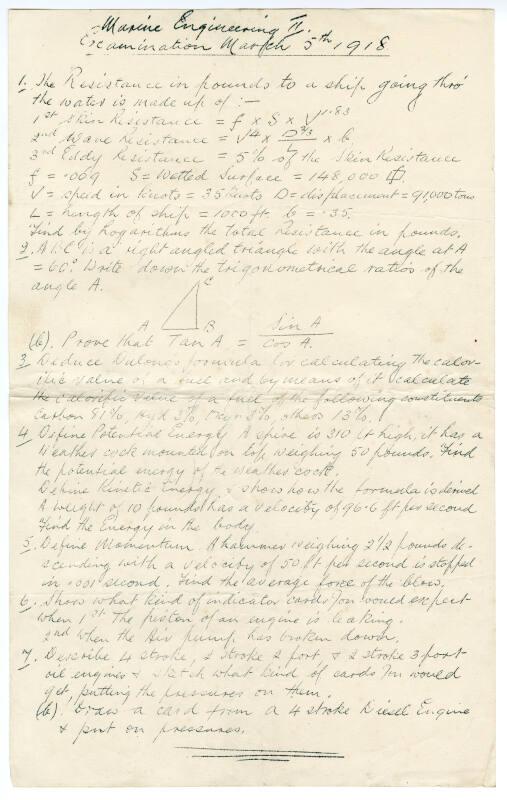 Marine Engineering II.
Examination March 5th 1918
1. The Resistance in pounds to a ship going thro'
the water is made up of :—
1st Skin Resistance = f × S × V^1.83
2nd Wave Resistance = V^4 × D^2/3 / L × b.
3rd Eddy Resistance = 5% of the Skin Resistance
f = .009 S = Wetted Surface = 148,000 □'
V = speed in knots = 35 knots D = displacement = 91,000 tons
L = length of ship = 1000 ft. b = .35.
Find by logarithms the total resistance in pounds.
2. ABC is a right angled triangle with the angle at A
= 60°. Write down the trigonometrical ratios of the
angle A.
C
A B
(b). Prove that Tan A = Sin A / Cos A.
3. Deduce Dulongs formula for calculating the calor-
ific value of a fuel and by means of it calculate
the calorific value of a fuel of the following constituents
Carbon 81%, Hyd 3%, Oxy 3%, others 13%.
4. Define Potential Energy. A spire is 310 ft high, it has a
Weather cock mounted on top weighing 50 pounds. Find
the potential energy of the weather cock.
Define Kinetic Energy & show how the formula is derived
A weight of 10 pounds has a velocity of 96.6 ft per second
Find the Energy in the body.
5. Define Momentum. A hammer weighing 2 1/2 pounds de-
scending with a velocity of 50 ft per second is stopped
in .001 second. Find the average force of the blow.
6. Show what kind of indicator cards you would expect
when 1st The piston of an engine is leaking.
2nd when the Air pump has broken down.
7. Describe 4 stroke, 2 stroke 2 port, & 2 stroke 3 port
oil engines & sketch what kind of cards you would
get, putting the pressures on them.
(b). Draw a card from a 4 stroke Diesel Engine
& put on pressures.